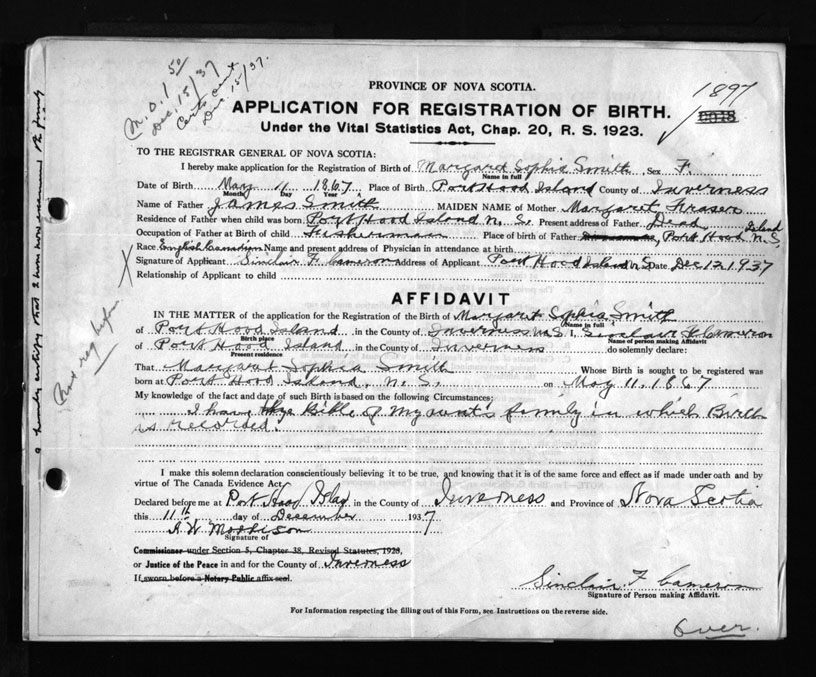 M.O. 1 50
Dec. 15/37
Certs sent
Dec 15/37.
1897
PROVINCE OF NOVA SCOTIA.
APPLICATION FOR REGISTRATION OF BIRTH.
Under the Vital Statistics Act, Chap. 20, R. S. 1923.
TO THE REGISTRAR GENERAL OF NOVA SCOTIA:
I hereby make application for the Registration of Birth of Margaret Sophia Smith Sex F.
Name in full
Date of Birth May 11 1867 Place of Birth Port Hood Island County of Inverness
Month Day Year
Name of Father James Smith MAIDEN NAME of Mother Margaret Fraser
Residence of Father when child was born Port Hood Island N. S. Present address of Father Dead
Occupation of Father at Birth of child Fisherman Place of birth of Father Port Hood Island N. S.
Race English Canadian Name and present address of Physician in attendance at birth
Signature of Applicant Sinclair F Cameron Address of Applicant Port Hood Island N.S. Date Dec 12 1937
Relationship of Applicant to child
AFFIDAVIT
IN THE MATTER of the application for the Registration of the Birth of Margaret Sophia Smith
Name in full
of Port Hood Island in the County of Inverness N.S. I, Sinclair F Cameron
Birth place Name of person making Affidavit
of Port Hood Island in the County of Inverness do solemnly declare:
Present residence
That Margaret Sophia Smith Whose Birth is sought to be registered was
born at Port Hood Island, N. S. on May 11, 1867
My knowledge of the fact and date of such Birth is based on the following Circumstances:
I have the Bible of my aunt's family in which Birth
is recorded.
I make this solemn declaration conscientiously believing it to be true, and knowing that it is of the same force and effect as if made under oath and by
virtue of The Canada Evidence Act.
Declared before me at Port Hood Islay in the County of Inverness and Province of Nova Scotia
this 11th day of December 1937
A. W. Morrison
Signature of
Commissioner under Section 5, Chapter 38, Revised Statutes, 1923,
or Justice of the Peace in and for the County of Inverness
If sworn before a Notary Public affix seal.
Sinclair F Cameron
Signature of Person making Affidavit.
For Information respecting the filling out of this Form, see Instructions on the reverse side.
Over.
Not reg before
I hereby certify that I have now examined the family